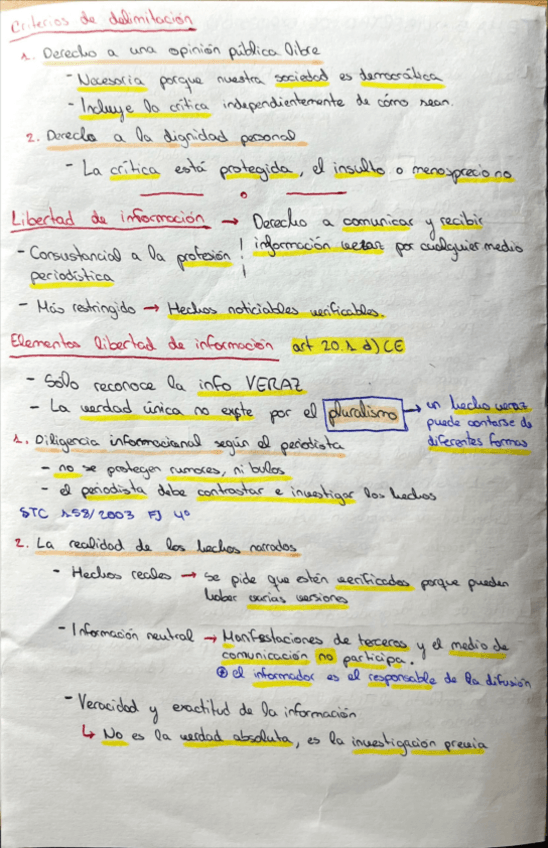 Criterios de delimitación
1. Derecho a una opinión pública libre
- Necesaria porque nuestra sociedad es democrática
- Incluye la crítica independientemente de cómo sean.
2. Derecho a la dignidad personal
- La crítica está protegida, el insulto o menosprecio no
Libertad de información → Derecho a comunicar y recibir
información veraz por cualquier medio
- Consustancial a la profesión !
periodística
- Más restringido → Hechos noticiables verificables.
Elementos libertad de información art 20.1 d) CE
- Sólo reconoce la info VERAZ
- La verdad única no existe por el pluralismo → un hecho veraz
puede contarse de
diferentes formas
1. Diligencia informacional según el periodista
- no se protegen rumores, ni bulos
- el periodista debe contrastar e investigar los hechos
STC 158/2003 FJ 4º
2. La realidad de los hechos narrados
- Hechos reales → se pide que estén verificados porque pueden
haber varias versiones
- Información neutral → Manifestaciones de terceros y el medio de
comunicación no participa.
el informador es el responsable de la difusión
- Veracidad y exactitud de la información
↳ No es la verdad absoluta, es la investigación previa